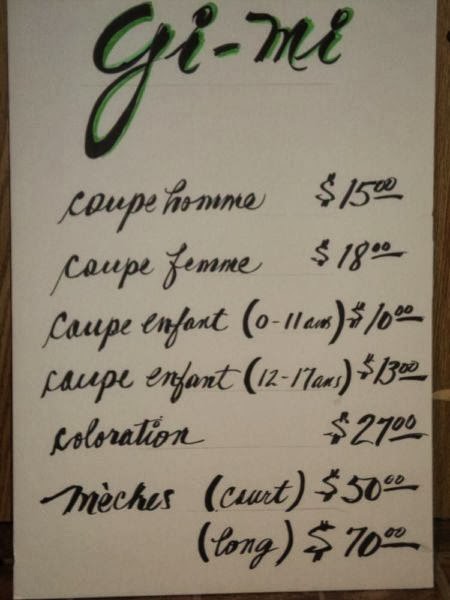 Gi-mi
coupe homme $15.00
coupe femme $18.00
coupe enfant (0-11 ans) $10.00
coupe enfant (12-17 ans) $13.00
coloration $27.00
mèches (court) $50.00
(long) $70.00